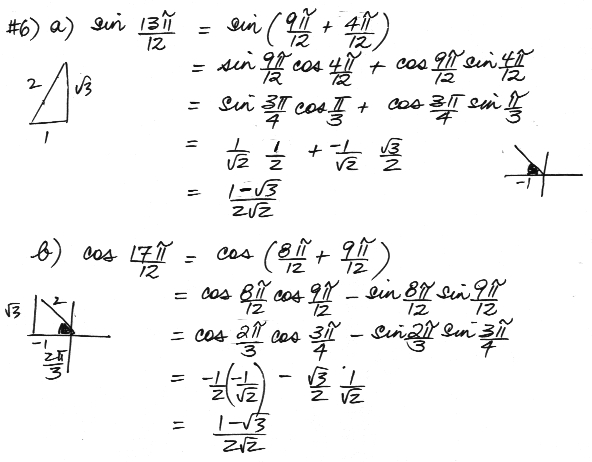 #6) a) sin 13π/12 = sin (9π/12 + 4π/12)
= sin 9π/12 cos 4π/12 + cos 9π/12 sin 4π/12
2 √3 1
= sin 3π/4 cos π/3 + cos 3π/4 sin π/3
= 1/√2 1/2 + -1/√2 √3/2
-1
= 1-√3/2√2
b) cos 17π/12 = cos (8π/12 + 9π/12)
= cos 8π/12 cos 9π/12 - sin 8π/12 sin 9π/12
√3 2 -1 2π/3
= cos 2π/3 cos 3π/4 - sin 2π/3 sin 3π/4
= -1/2 (-1/√2) - √3/2 1/√2
= 1-√3/2√2